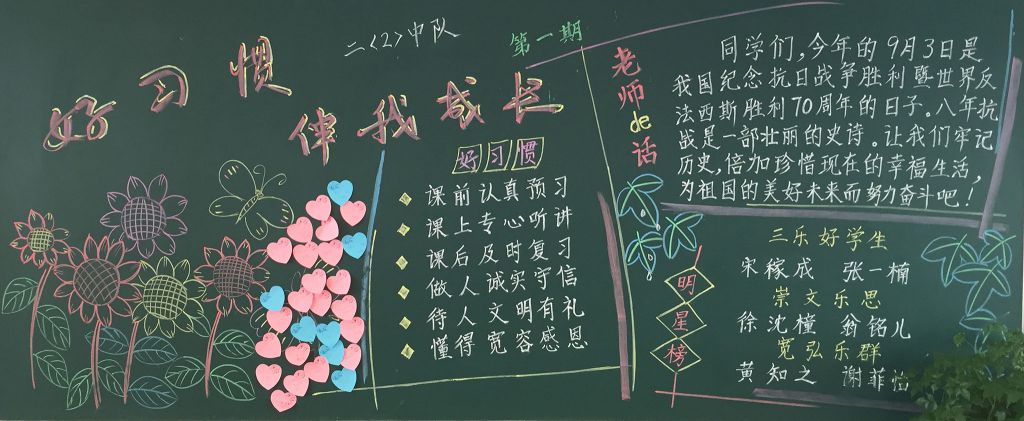 二〈2〉中队
第一期
好习惯
伴我成长
好习惯
课前认真预习
课上专心听讲
课后及时复习
做人诚实守信
待人文明有礼
懂得宽容感恩
老师de话
同学们,今年的9月3日是
我国纪念抗日战争胜利暨世界反
法西斯胜利70周年的日子。八年抗
战是一部壮丽的史诗。让我们牢记
历史,倍加珍惜现在的幸福生活,
为祖国的美好未来而努力奋斗吧!
明星榜
三乐好学生
宋稼成 张一楠
崇文乐思
徐沈橦 翁铭儿
宽弘乐群
黄知之 谢菲怡